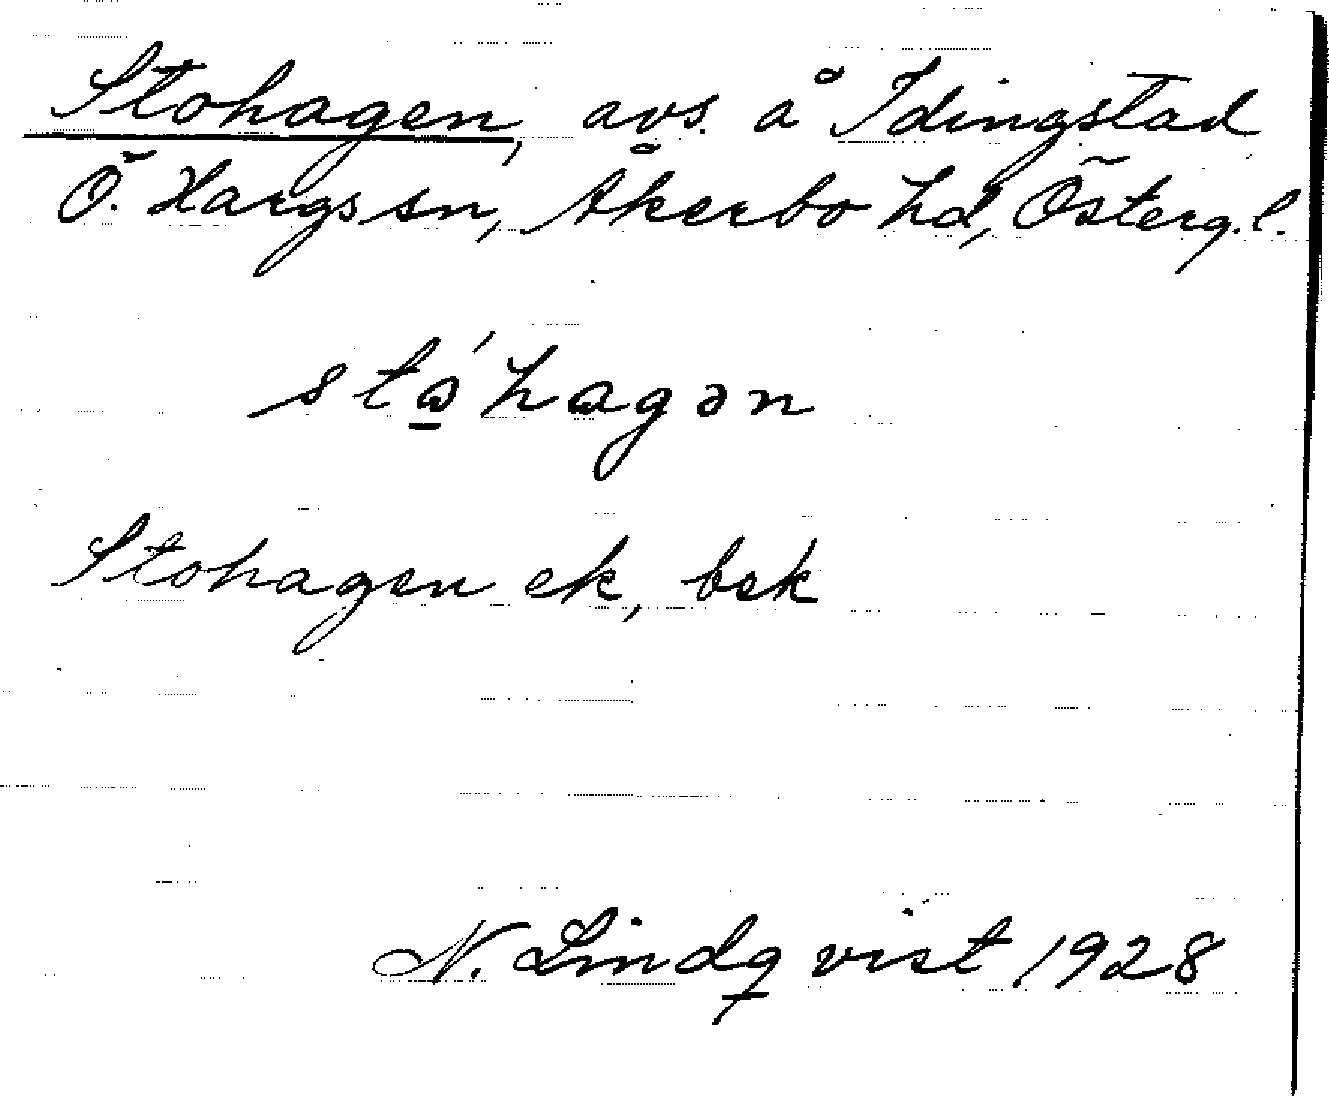 Stohagen, avs. å Idingstad
Ö. Hargs sn, Åkerbo hd, Österg.l.
stώ̲hagən
Stohagen ek, bsk
N. Lindqvist 1928